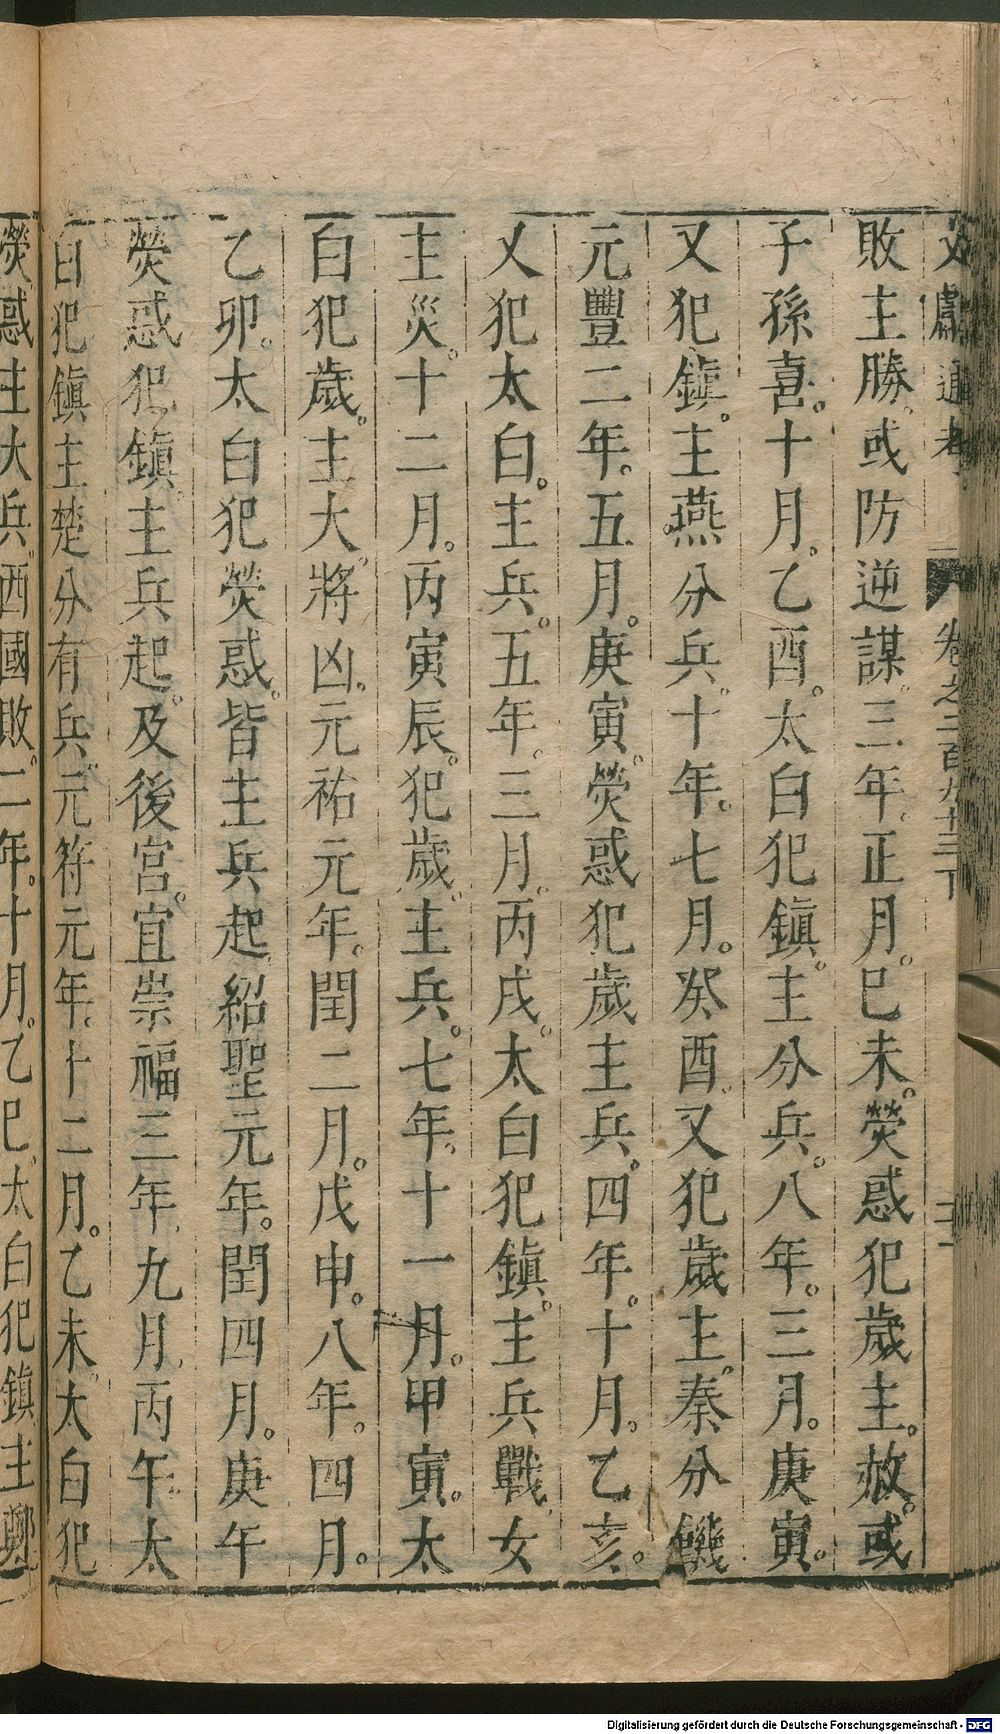 文獻通考 卷之二百九十三下
敗主勝。或防逆謀。三年正月。巳未。熒惑犯歲主。赦。或
子孫喜。十月。乙酉。太白犯鎮。主分兵。八年。三月。庚寅。
又犯鎮。主燕分兵。十年。七月。癸酉。又犯歲主。秦分饑
元豐二年。五月。庚寅。熒惑犯歲主兵。四年。十月。乙亥。
又犯太白。主兵。五年。三月。丙戌。太白犯鎮。主兵戰。女
主災。十二月。丙寅辰。犯歲。主兵。七年。十一月。甲寅。太
白犯歲。主大將凶。元祐元年。閏二月。戊申。八年。四月。
乙卯。太白犯熒惑。皆主兵起。紹聖元年。閏四月。庚午
熒惑犯鎮。主兵起。及後宮。宜崇福三年。九月。丙午。太
白犯鎮主楚分有兵。元符元年。十二月。乙未。太白犯
熒惑主大兵。西國敗。二年。十月。乙巳。太白犯鎮主
Digitalisierung gefördert durch die Deutsche Forschungsgemeinschaft - DFG